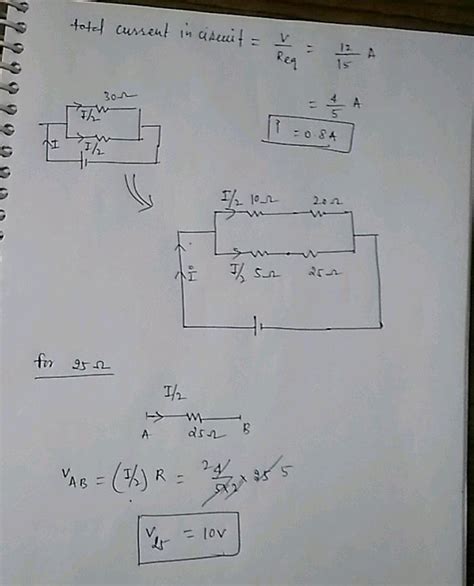 total current in circuit = V/Req = 12/15 A
= 4/5 A
I = 0.8A
30Ω
I/2
I
I/2
I/2 10Ω 20Ω
I
I/2 5Ω 25Ω
for 25Ω
I/2
A 25Ω B
V_AB = (I/2) R = 2 4/5×2 × 25 5
V_25 = 10V